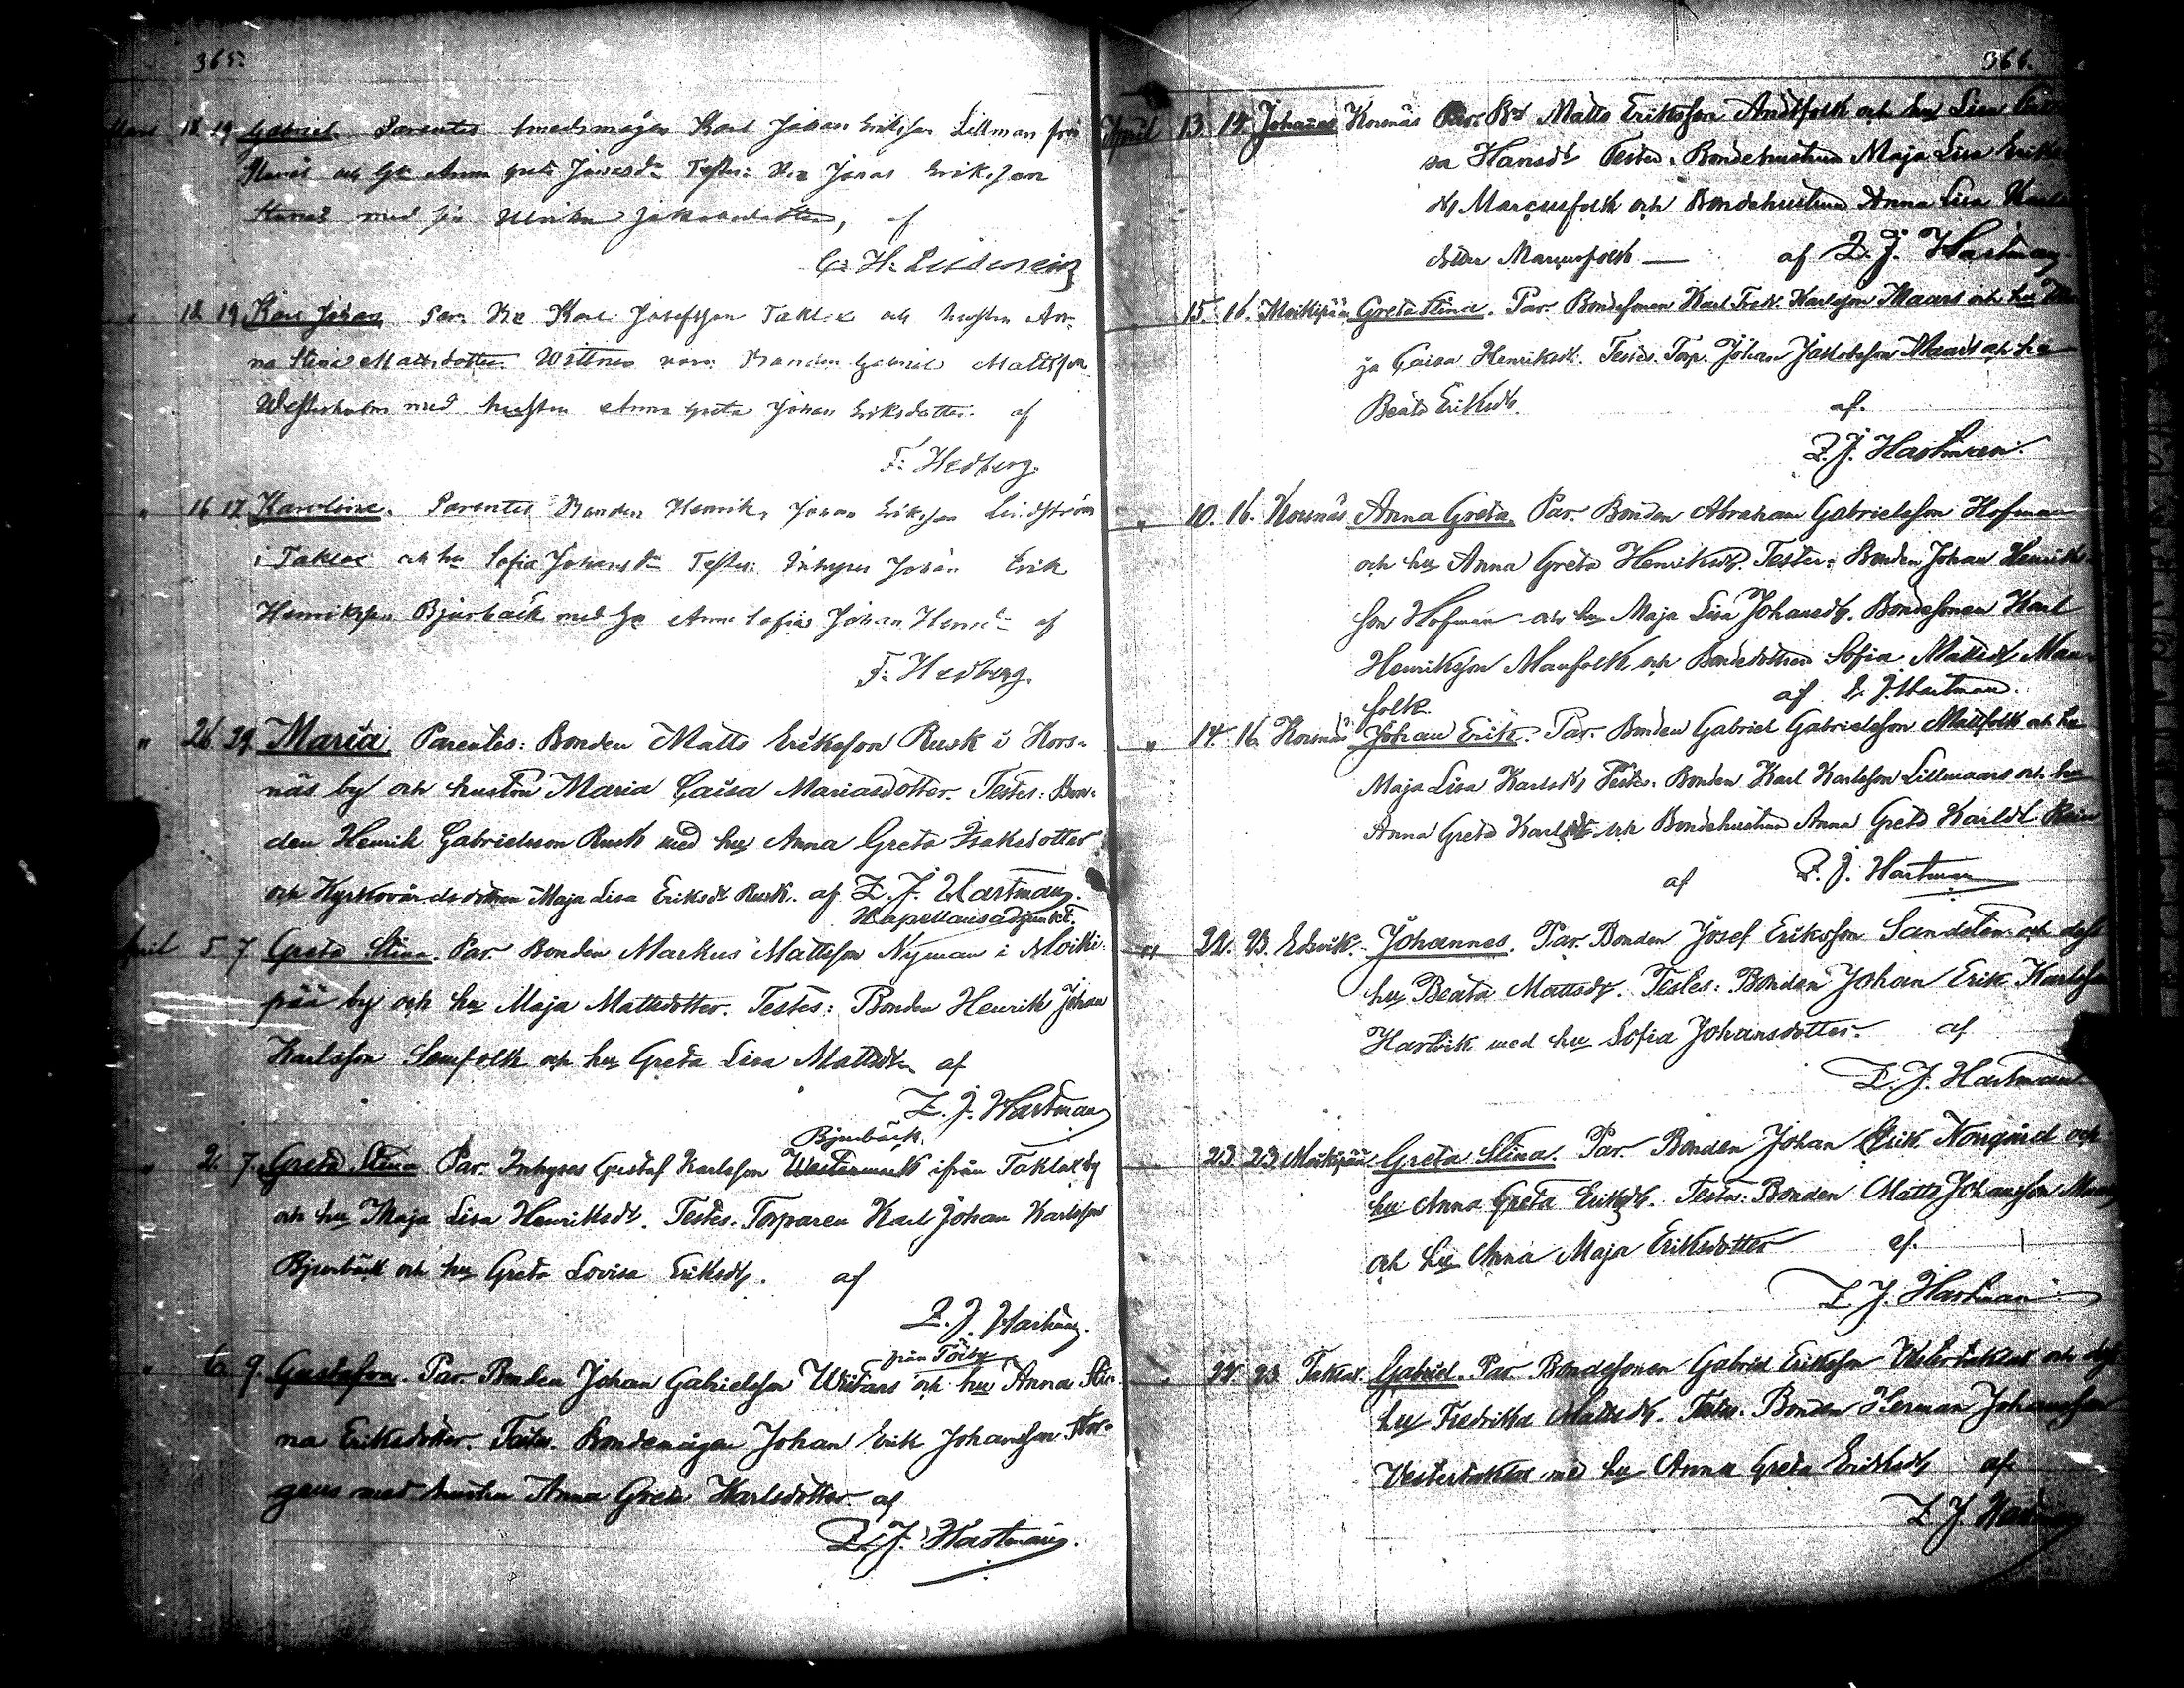 365.
Mars 18 19 Gabriel. Parentes Karl Johan Eriksson Lillman från
och Anna Greta Jonasdr Testes: Jonas Eriksson
med Ulrika Jakobsdotter, af
18 19 Karl Johan Par. Karl Josefsson Taklax och hustru An-
na Stina Mattsdotter. Wittnen voro Bonden Gabriel Mattsson
Westerholm med hustru Anna Greta Johan Eriksdotter. af
F: Hedberg.
" 16 17 Karolina. Parentes Bonden Henrik Johan Eriksson Lindström
i Taklax och hu Sofia Johansdr Testes: Inhyses Johan Erik
Henriksson Bjurbäck med hu Anna Sofia Johan Hensdr af
F: Hedberg.
" 26. 29. Maria Parentes: Bonden Matts Eriksson Rusk i Kors-
näs by och hustru Maria Caisa Mariasdotter. Testes: Bon-
den Henrik Gabrielsson Rusk med hu Anna Greta Isaksdotter
och Kyrkovärdsdottren Maja Lisa Eriksdr Rusk. af Z. J. Hartman.
Kapellansadjunkt.
April 5. 7. Greta Stina. Par. Bonden Markus Mattsson Nyman i Moiki-
pää by och hu Maja Mattsdotter. Testes: Bonden Henrik Johan
Karlsson Samfolk och hu Greta Lisa Mattsdr af
Z. J. Hartman
Bjurbäck.
" 2. 7. Greta Stina Par. Inhyses Gustaf Karlsson Westermark ifrån Taklax by
och hu Maja Lisa Henriksdr. Testes. Torparen Karl Johan Karlsson
Bjurbäck och hu Greta Lovisa Eriksdr. af
Z. J. Hartman.
från Töiby
" 6. 9. Gustafva. Par. Bonden Johan Gabrielsson Witfars och hu Anna Sti-
na Eriksdotter. Testes. Bondemågen Johan Erik Johansson Stor-
gaus med hustru Anna Greta Karlsdotter af
Z. J. Hartman.
366.
April 13. 14. Johannes Korsnäs Par. Bd Matts Eriksson Andtfolk och hu Lisa
sa Hansdr Testes: Bondehustrun Maja Lisa Eriks
dr Marcusfolk och Bondehustrun Anna Lisa Karls
dotter Marcusfolk — af Z. J. Hartman
15. 16. Moikipää Greta Stina. Par. Bondesonen Karl Fredr. Karlsson Maars och hu
ja Caisa Henriksdr. Testes. Torp. Johan Jakobsson Maars och hu
Beata Eriksdr. af.
Z. J. Hartman.
" 10. 16. Korsnäs Anna Greta. Par. Bonden Abraham Gabrielsson Hofman
och hu Anna Greta Henriksdr. Testes: Bonden Johan Henriks-
son Hofman och hu Maja Lisa Johansdr. Bondesonen Karl
Henriksson Manfolk och Bondedottren Sofia Mattsdr Man-
folk. af Z. J. Hartman.
" 14. 16. Korsnäs Johan Erik. Par. Bonden Gabriel Gabrielsson Mattfolk och hu
Maja Lisa Karlsdr Testes. Bonden Karl Karlsson Lillmaars och hu
Anna Greta Karlsdr och Bondehustrun Anna Greta Karlsdr
af Z. J. Hartman
" 22. 23. Edsvik. Johannes. Par. Bonden Josef Eriksson Sandelin och dess
hu Beata Mattsdr. Testes: Bonden Johan Erik Karlsson
Hartvik med hu Sofia Johansdotter. af
Z. J. Hartman
23. 23 Moikipää Greta Stina. Par. Bonden Johan Erik Norrgård och
hu Anna Greta Eriksdr. Testes: Bonden Matts Johansson
och hu Anna Maja Eriksdotter af.
Z. J. Hartman
22. 23 Taklax. Gabriel. Par. Bondesonen Gabriel Eriksson Vestertaklax och dess
hu Fredrika Mattsdr. Testes. Bonden Herman Johansson
Vestertaklax med hu Anna Greta Eriksdr af
Z. J. Hartman